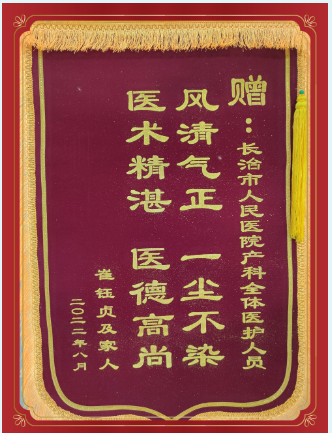 赠：长治市人民医院产科全体医护人员
风清气正 一尘不染
医术精湛 医德高尚
崔钰贞及家人
二〇二二年八月